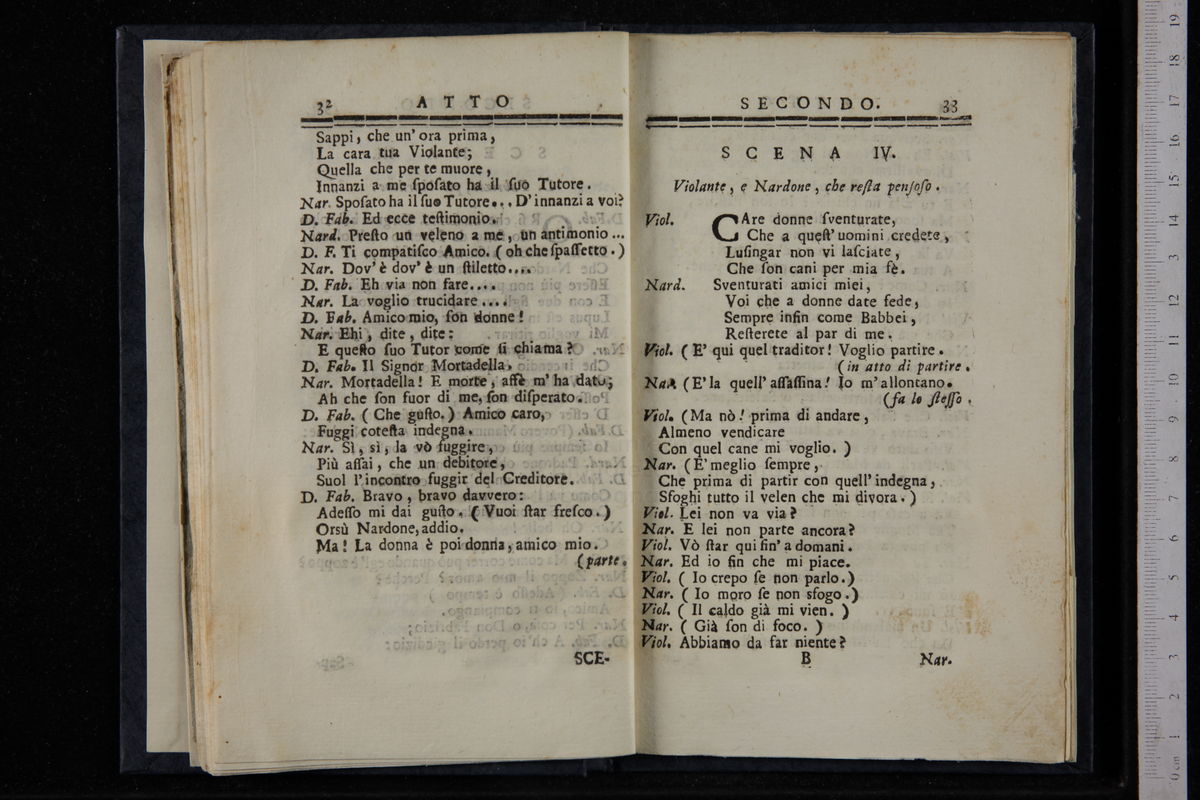 32 ATTO
Sappi, che un' ora prima,
La cara tua Violante;
Quella che per te muore,
Innanzi a me ſpoſato ha il ſuo Tutore.
Nar. Spoſato ha il ſuo Tutore... D'innanzi a voi?
D. Fab. Ed ecce teſtimonio.
Nard. Preſto un veleno a me, un antimonio...
D. F. Ti compatiſco Amico. (oh che ſpaſſetto.)
Nar. Dov' è dov' è un ſtiletto....
D. Fab. Eh via non fare....
Nar. La voglio trucidare....
D. Fab. Amico mio, ſon donne!
Nar. Ehi, dite, dite:
E queſto ſuo Tutor come ſi chiama?
D. Fab. Il Signor Mortadella.
Nar. Mortadella! E morte, affè m' ha dato;
Ah che ſon fuor di me, ſon diſperato.
D. Fab. (Che guſto.) Amico caro,
Fuggi coteſta indegna.
Nar. Sì, sì, la vò fuggire,
Più aſſai, che un debitore,
Suol l'incontro fuggir del Creditore.
D. Fab. Bravo, bravo davvero:
Adeſſo mi dai guſto. (Vuoi ſtar freſco.)
Orsù Nardone, addio.
Ma! La donna è poi donna, amico mio.
(parte.
SCE-
SECONDO. 33
SCENA IV.
Violante, e Nardone, che reſta penſoſo.
Viol. CAre donne ſventurate,
Che a queſt' uomini credete,
Luſingar non vi laſciate,
Che ſon cani per mia fè.
Nard. Sventurati amici miei,
Voi che a donne date fede,
Sempre infin come Babbei,
Reſterete al par di me.
Viol. (E' qui quel traditor! Voglio partire.
(in atto di partire.
Nar. (E' la quell' aſſaſſina! Io m'allontano.
(fa lo ſteſſo.
Viol. (Ma nò! prima di andare,
Almeno vendicare
Con quel cane mi voglio.)
Nar. (E' meglio ſempre,
Che prima di partir con quell' indegna,
Sfoghi tutto il velen che mi divora.)
Viol. Lei non va via?
Nar. E lei non parte ancora?
Viol. Vò ſtar qui fin' a domani.
Nar. Ed io fin che mi piace.
Viol. (Io crepo ſe non parlo.)
Nar. (Io moro ſe non sfogo.)
Viol. (Il caldo già mi vien.)
Nar. (Già ſon di foco.)
Viol. Abbiamo da far niente?
B Nar.